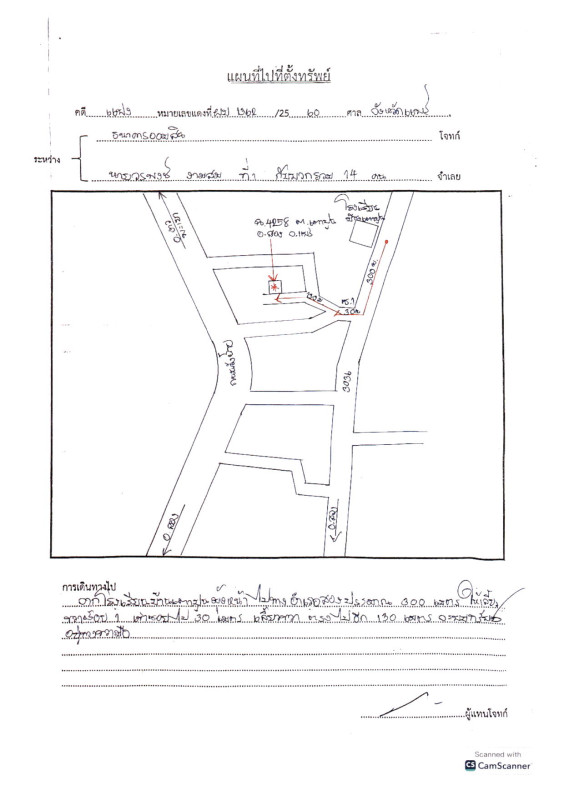 แผนที่ไปที่ตั้งทรัพย์
คดี แพ่ง หมายเลขแดงที่ ผบ 1262 /25 60 ศาล จังหวัดแพร่
ระหว่าง ธนาคารออมสิน โจทก์
ที่1 กับพวกรวม 14 คน จำเลย
โรงเรียน
ฉ.4258
อ.สอง จ.แพร่
300 ม
130 ม
ซ.1
30 ม
3036
อ.สอง
อ.สอง
การเดินทางไป
จากโรงเรียน ไปทาง อำเภอสองประมาณ 300 เมตร ให้เลี้ยว
ขวาซอย 1 เข้าซอยไป 30 เมตร เลี้ยวขวา ตรงไปอีก 130 เมตร จะพบทรัพย์
อยู่ทางขวามือ
ผู้แทนโจทก์
Scanned with
CS CamScanner